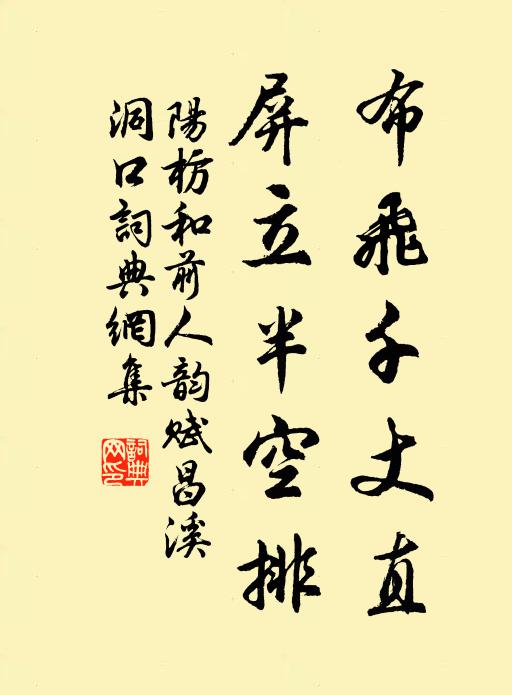 布飛千丈直
屏立半空排
陽枋和前人韵賦昌溪
洞口詞典網集
詞典
网印